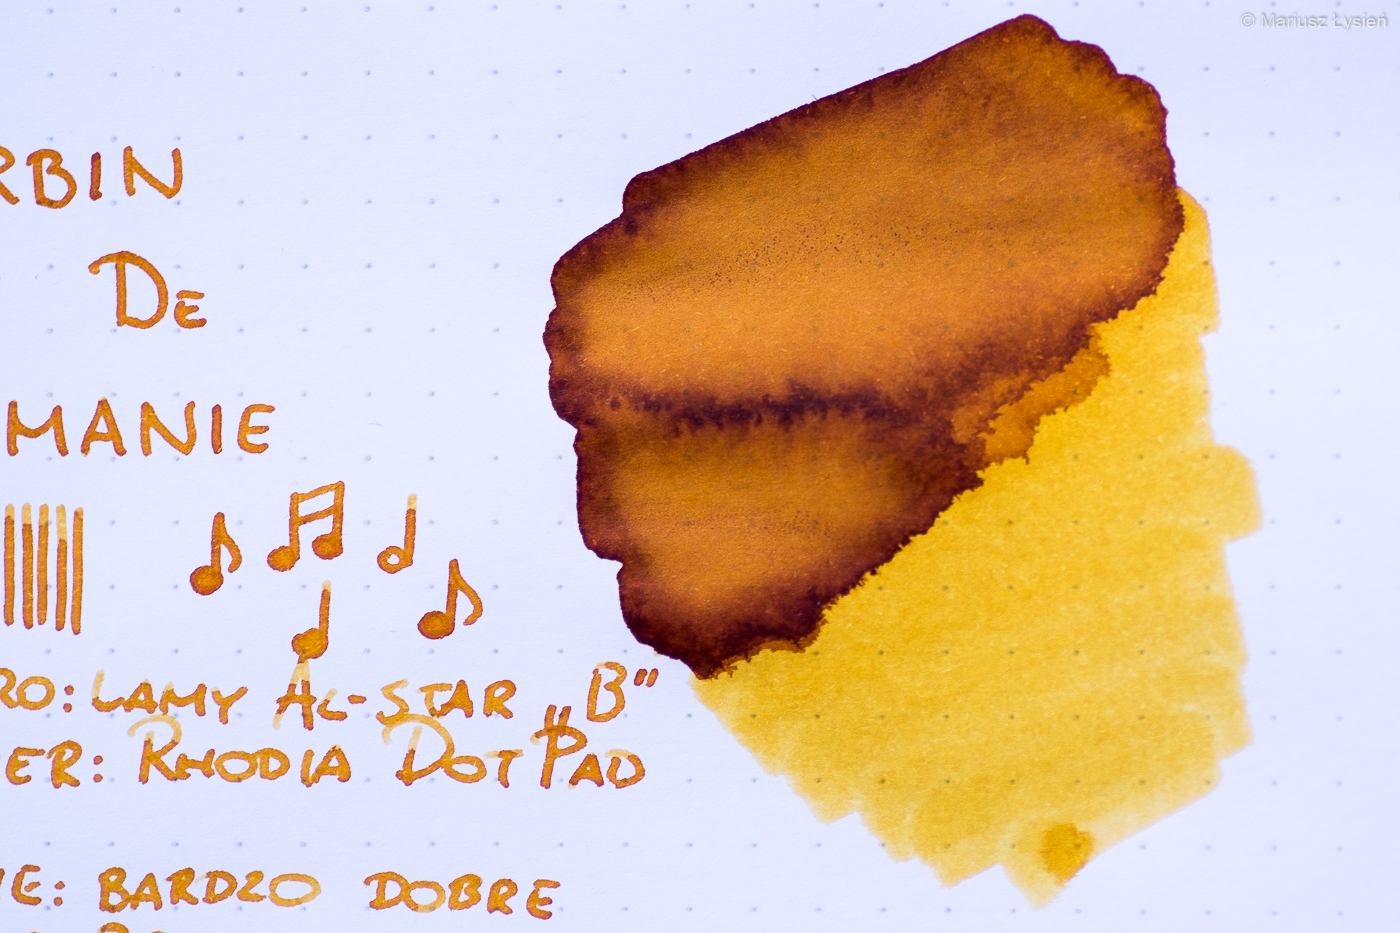 © Mariusz Łysień
RBIN
De
MANIE
RO: LAMY AL-STAR „B”
ER: RHODIA DOT PAD
IE: BARDZO DOBRE